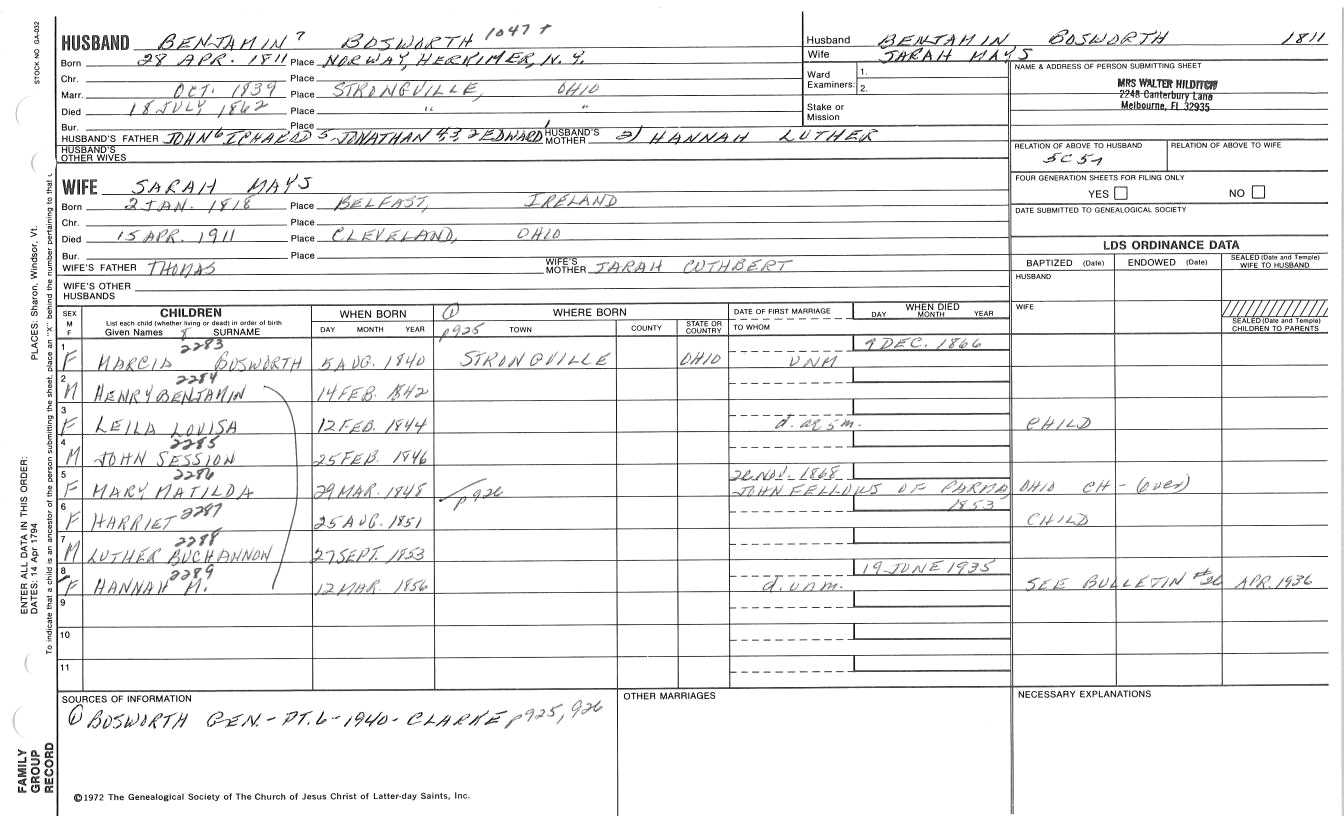 STOCK NO. GA-032
PLACES: Sharon, Windsor, Vt.
ENTER ALL DATA IN THIS ORDER:
DATES: 14 Apr 1794
To indicate that a child is an ancestor of the person submitting the sheet, place an "X" behind the number pertaining to that
FAMILY GROUP RECORD
HUSBAND BENJAMIN 7 BOSWORTH 1047 +
Born 28 APR. 1811 Place NORWAY, HERKIMER, N.Y.
Chr. Place
Marr. OCT. 1839 Place STRONGVILLE, OHIO
Died 18 JULY 1862 Place " "
Bur. Place
HUSBAND'S FATHER JOHN 6 ICHABOD 5 JONATHAN 4,3, 2 EDWARD 1 HUSBAND'S MOTHER 2) HANNAH LUTHER
HUSBAND'S OTHER WIVES
Husband BENJAMIN BOSWORTH 1811
Wife SARAH MAYS
Ward Examiners: 1.
2.
Stake or Mission
NAME & ADDRESS OF PERSON SUBMITTING SHEET
MRS WALTER HILDITCH
2248 Canterbury Lane
Melbourne, FL 32935
RELATION OF ABOVE TO HUSBAND RELATION OF ABOVE TO WIFE
5C5r
FOUR GENERATION SHEETS FOR FILING ONLY
YES NO
DATE SUBMITTED TO GENEALOGICAL SOCIETY
WIFE SARAH MAYS
Born 2 JAN. 1818 Place BELFAST, IRELAND
Chr. Place
Died 15 APR. 1911 Place CLEVELAND, OHIO
Bur. Place
WIFE'S FATHER THOMAS WIFE'S MOTHER SARAH CUTHBERT
WIFE'S OTHER HUSBANDS
LDS ORDINANCE DATA
BAPTIZED (Date) ENDOWED (Date) SEALED (Date and Temple) WIFE TO HUSBAND
HUSBAND
WIFE
SEALED (Date and Temple) CHILDREN TO PARENTS
SEX M F CHILDREN WHEN BORN ① WHERE BORN DATE OF FIRST MARRIAGE WHEN DIED
List each child (whether living or dead) in order of birth DAY MONTH YEAR
Given Names 8 SURNAME DAY MONTH YEAR p925 TOWN COUNTY STATE OR COUNTRY TO WHOM
1 2283 9 DEC. 1866
F MARCIA BOSWORTH 5 AUG. 1840 STRONGVILLE OHIO UNM
2 2284
M HENRY BENJAMIN 14 FEB. 1842
3
F LEILA LOUISA 12 FEB. 1844 d. ae 5 m. CHILD
4 2285
M JOHN SESSION 25 FEB. 1846
5 2286 22 NOV. 1868
F MARY MATILDA 29 MAR. 1848 p926 JOHN FELLOWS OF PARMA, OHIO CH - (over)
6 2287 1853
F HARRIET 25 AUG. 1851 CHILD
7 2288
M LUTHER BUCHANNON 27 SEPT. 1853
8 2289 19 JUNE 1935
F HANNAH M. 12 MAR. 1856 d. unm. SEE BULLETIN #26 APR. 1936
9
10
11
SOURCES OF INFORMATION OTHER MARRIAGES NECESSARY EXPLANATIONS
① BOSWORTH GEN. - PT. 6 - 1940 - CLARKE p925, 926
©1972 The Genealogical Society of The Church of Jesus Christ of Latter-day Saints, Inc.